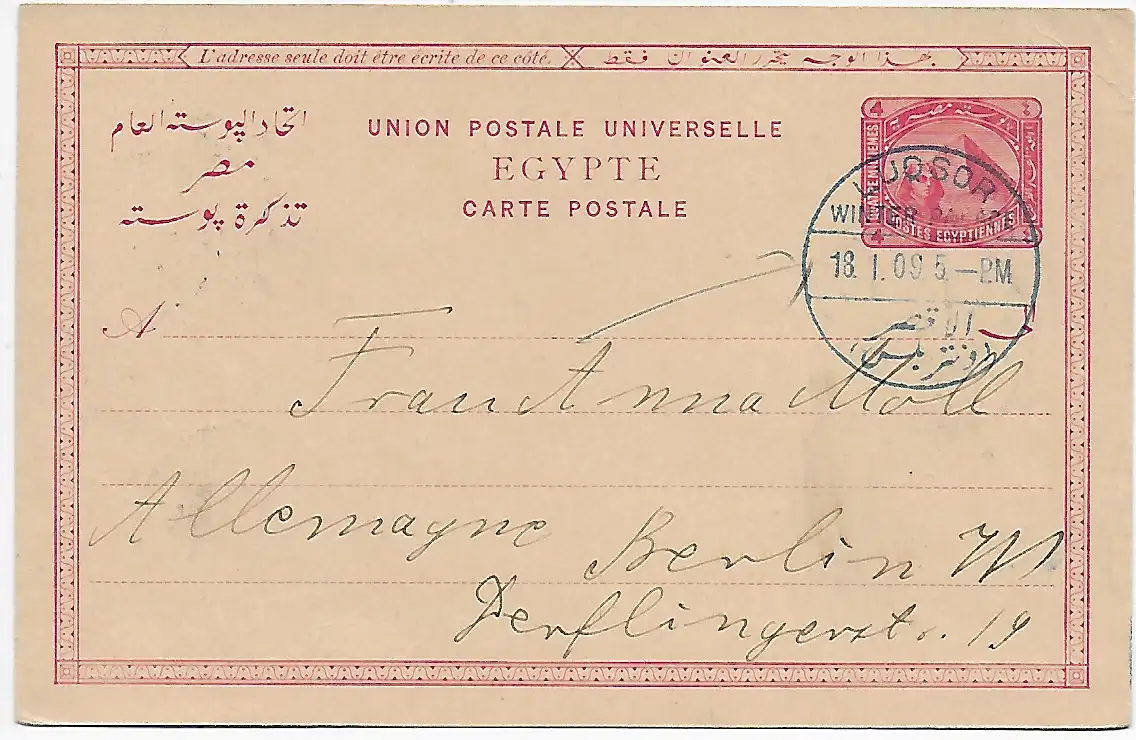 L'adresse seule doit être écrite de ce côté. بهذا الوجه يحرر العنوان فقط
اتحاد البوسته العام
مصر
تذكرة بوسته
UNION POSTALE UNIVERSELLE
EGYPTE
CARTE POSTALE
4 ٤
بوسته مصر
POSTES EGYPTIENNES
4
LUQSOR
WINTER PALACE
18. I. 09 5.—PM
الاقصر
(ونتر بلس)
A
Frau Anna Moll
Allemagne Berlin W
Derflingerstr. 19